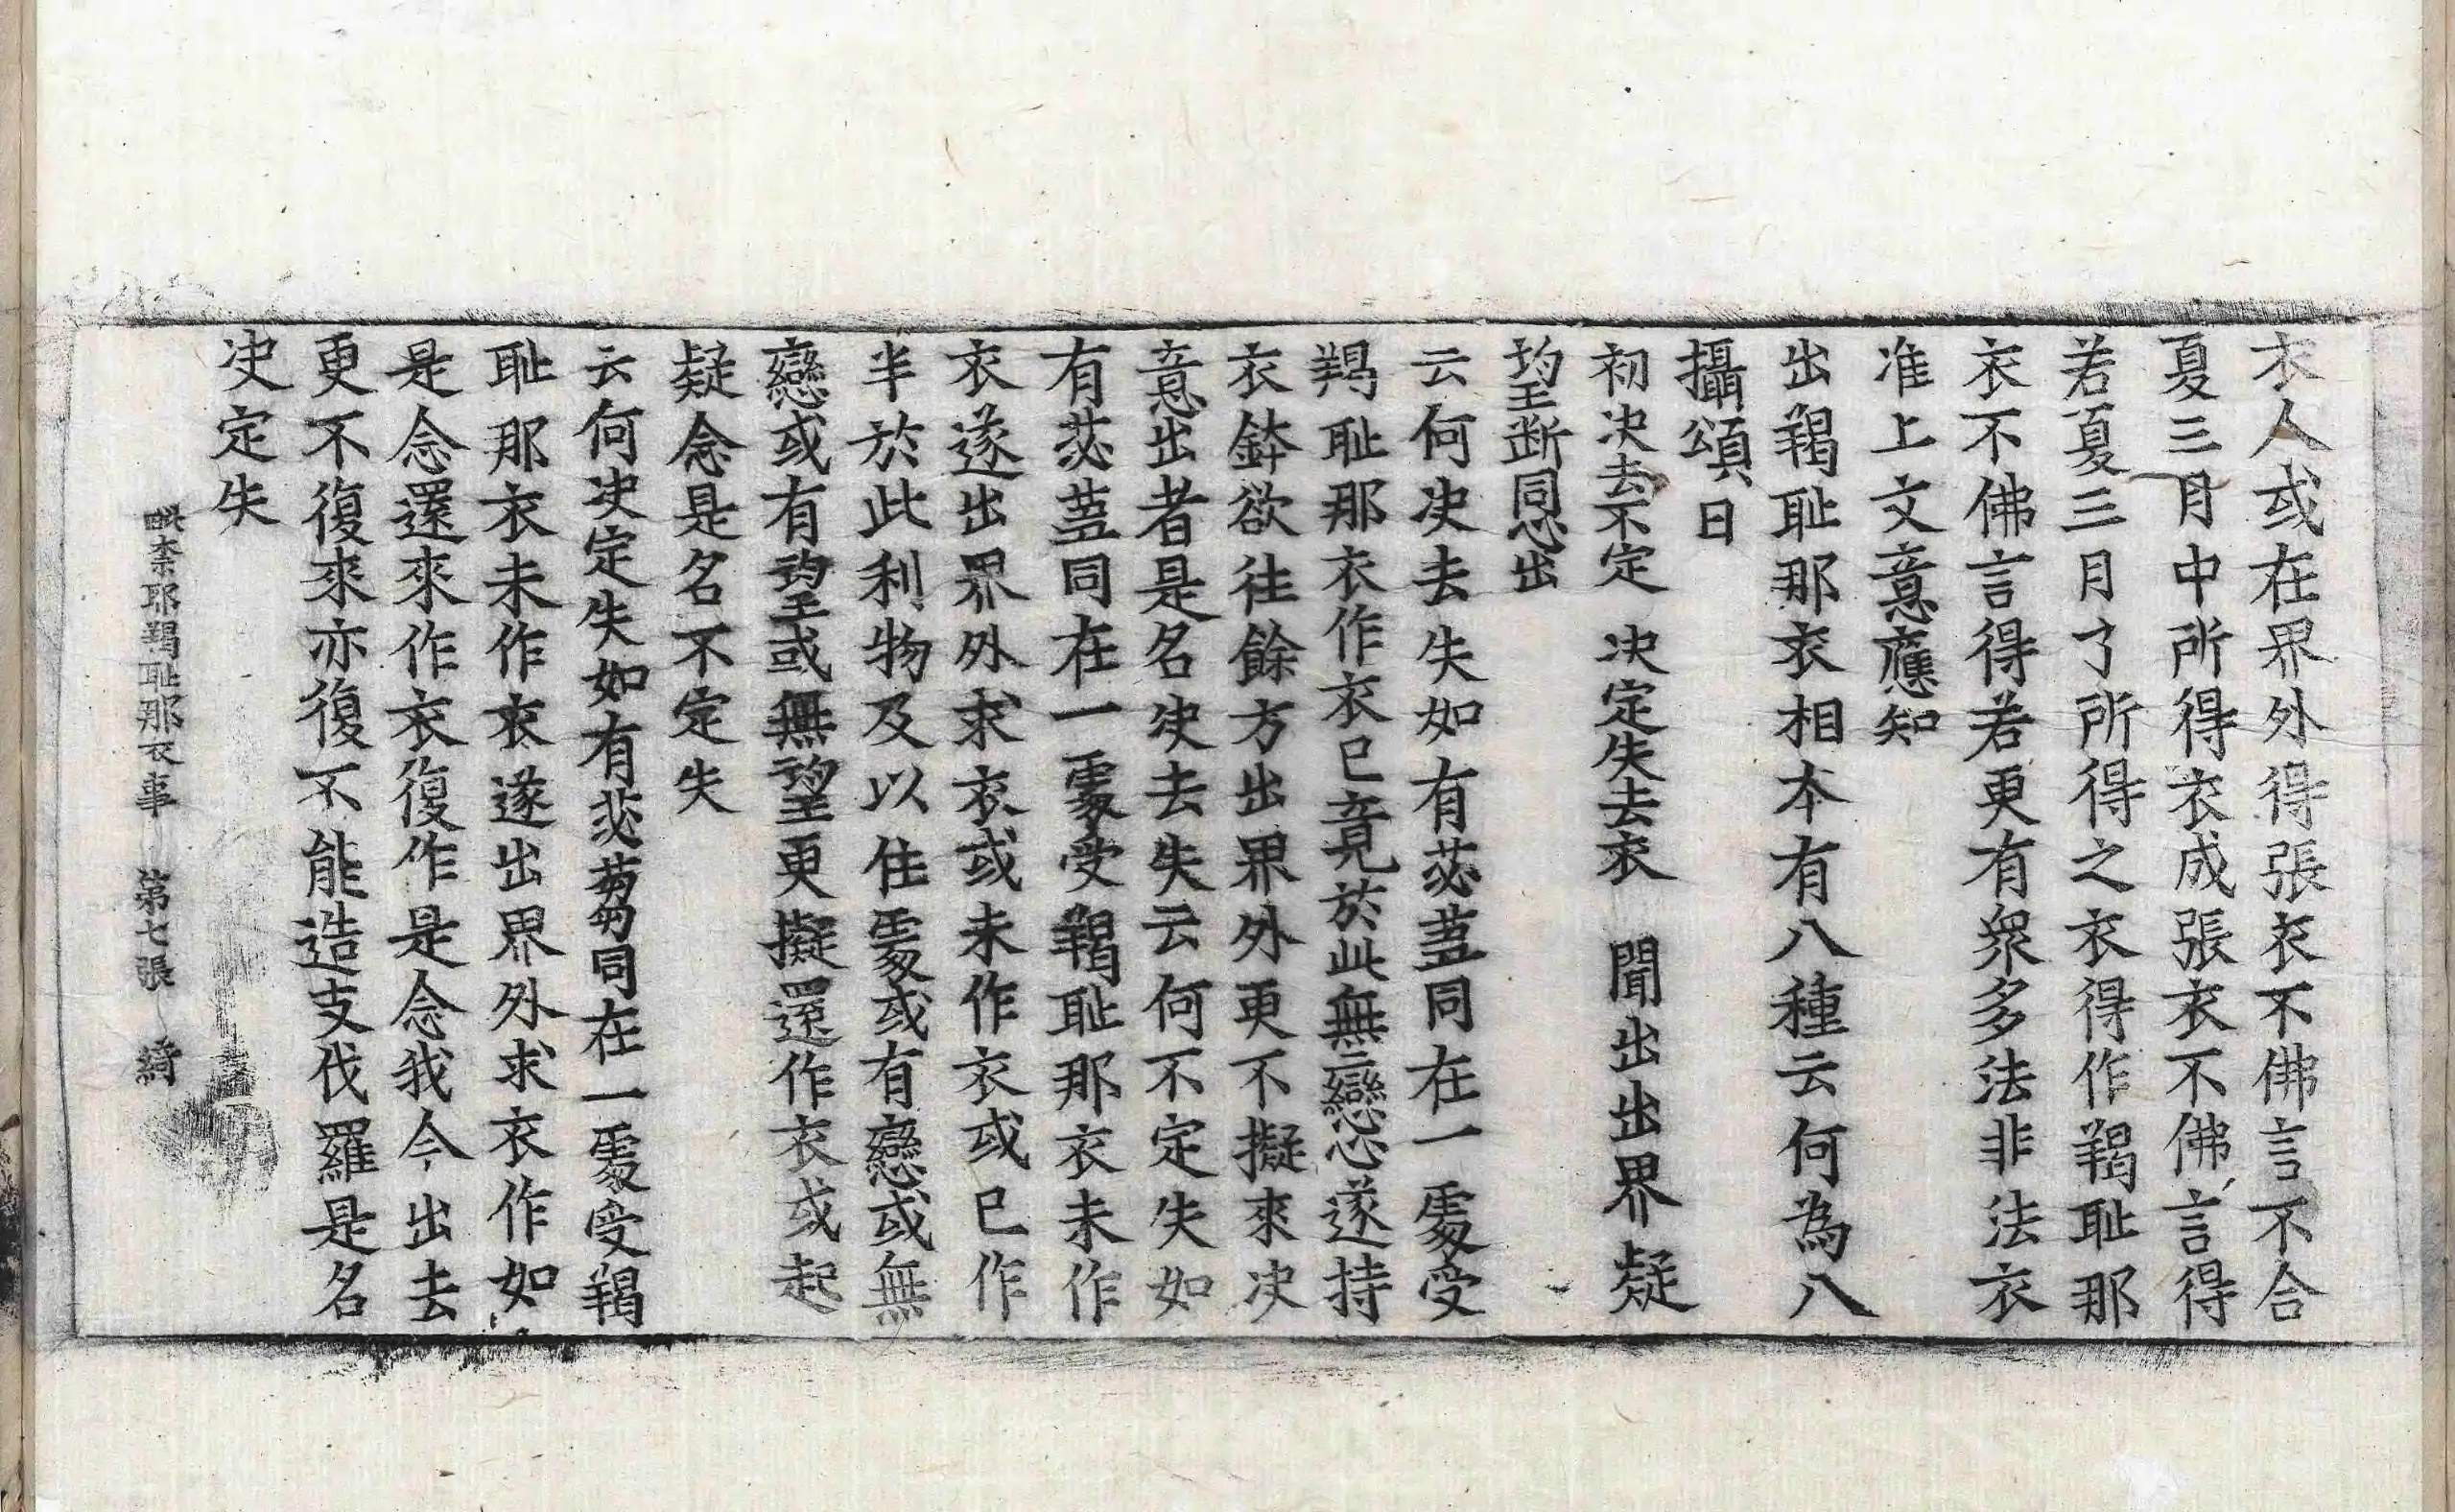 衣人或在界外得張衣不佛言不合
夏三月中所得衣成張衣不佛言得
若夏三月了所得之衣得作羯耻那
衣不佛言得若更有衆多法非法衣
准上文意應知
出羯耻那衣相本有八種云何為八
攝頌曰
初决去不定 决定失去衣 聞出出界疑
望斷同心出
云何决去失如有苾蒭同在一處受
羯耻那衣作衣已竟於此無戀心遂持
衣鉢欲往餘方出界外更不擬來决
意出者是名决去失云何不定失如
有苾蒭同在一處受羯耻那衣未作
衣遂出界外求衣或未作衣或已作
半於此利物及以住處或有戀或無
戀或有望或無望更擬還作衣或起
疑念是名不定失
云何决定失如有苾蒭同在一處受羯
耻那衣未作衣遂出界外求衣作如
是念還來作衣復作是念我今出去
更不復來亦復不能造支伐羅是名
决定失
毗柰耶羯耻那衣事 第七張 綺